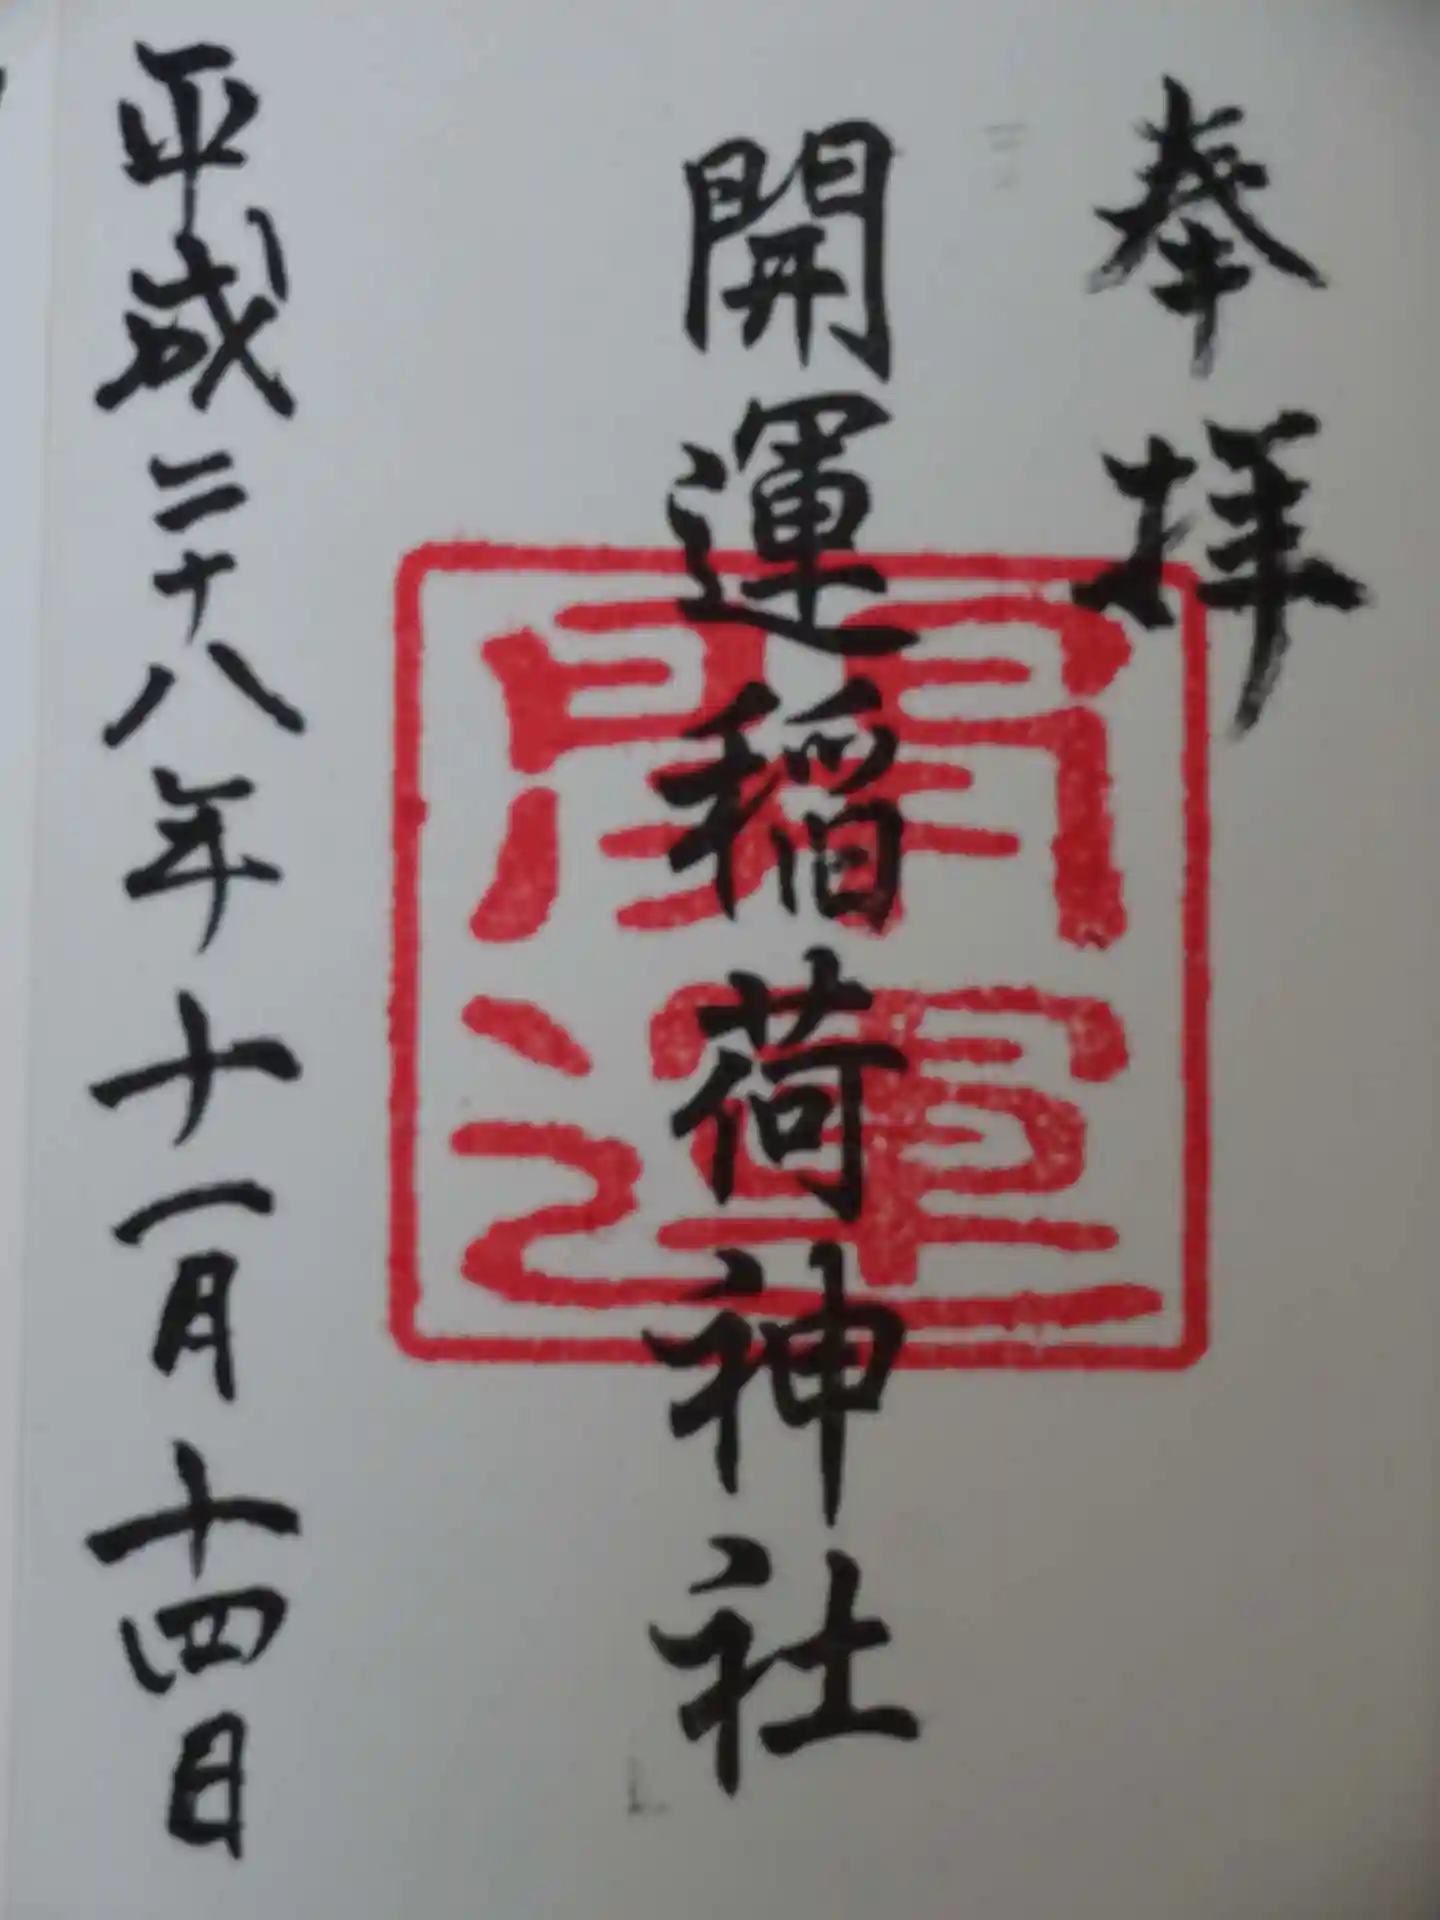 奉拝
開運稲荷神社
開運
平成二十八年十一月十四日